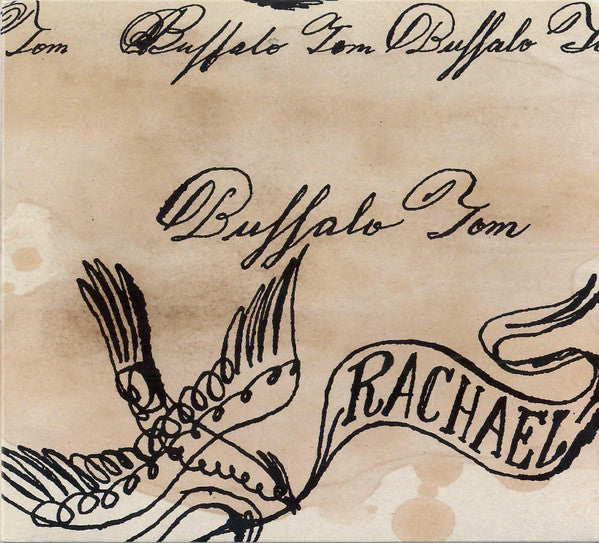 Tom Buffalo Tom Buffalo T
Buffalo Tom
RACHAEL